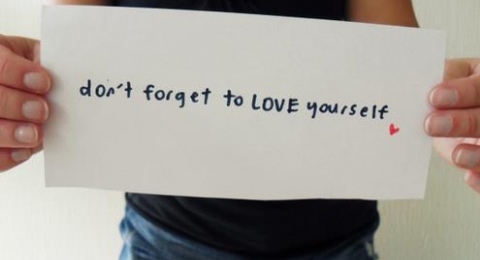 don't forget to LOVE yourself